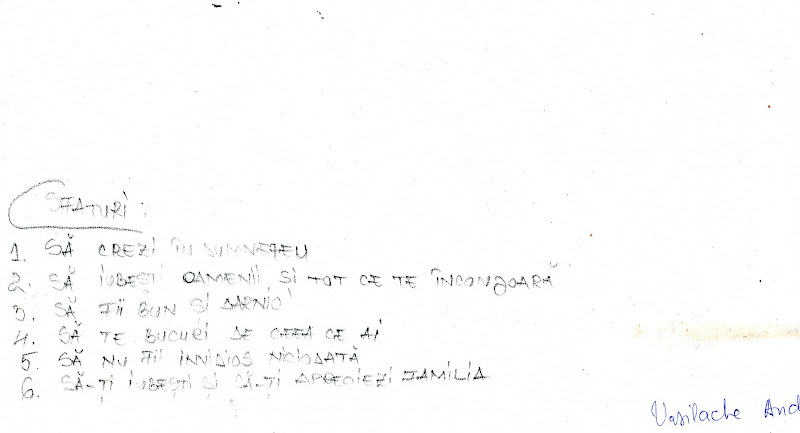 SFATURI:
1. SĂ CREZI ÎN DUMNEZEU
2. SĂ IUBEȘTI OAMENII ȘI TOT CE TE ÎNCONJOARĂ
3. SĂ FII BUN ȘI DARNIC
4. SĂ TE BUCURI DE CEEA CE AI
5. SĂ NU FII INVIDIOS NICIODATĂ
6. SĂ-ȚI IUBEȘTI ȘI SĂ-ȚI APRECIEZI FAMILIA
Vasilache And